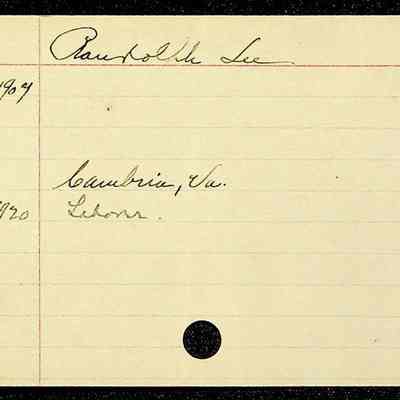 Randolph Lee
1907
Cambria, Va.
1920 Laborer.